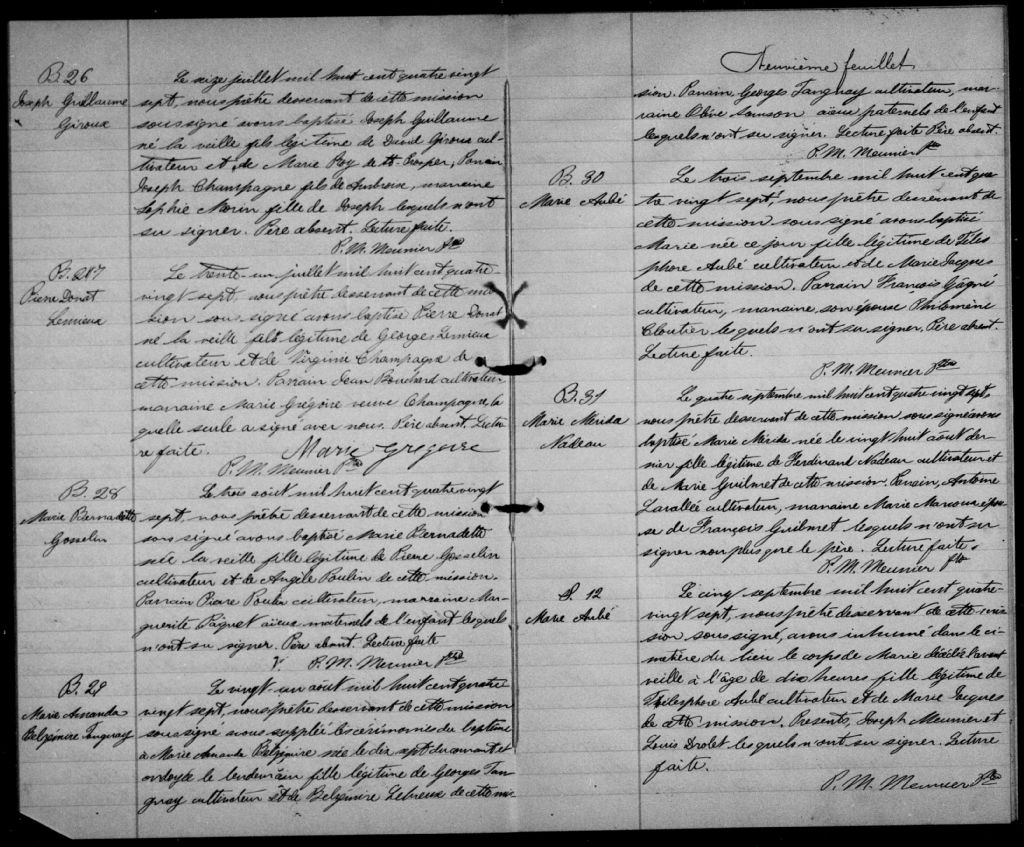 B. 26
Joseph Guillaume
Giroux
Le seize juillet mil huit cent quatre vingt
sept, nous prêtre desservant de cette mission
soussigné avons baptisé Joseph Guillaume
né la veille fils légitime de David Giroux cul-
tivateur et de Marie Roy de St Prosper, Parrain
Joseph Champagne fils de Ambroise, marraine
Sophie Morin fille de Joseph lesquels n'ont
su signer. Père absent. Lecture faite.
P. M. Meunier Ptre
B. 27
Pierre Donat
Lemieux
Le trente-un juillet mil huit cent quatre
vingt sept, nous prêtre desservant de cette mis
sion sous signé avons baptisé Pierre Donat
né la veille fils légitime de Georges Lemieux
cultivateur et de Virginie Champagne de
cette mission. Parrain Jean Bouchard cultivateur
marraine Marie Grégoire veuve Champagne, la
quelle seule a signé avec nous. Père absent. Lectu
re faite. Marie Gregoire
P. M. Meunier Ptre
B. 28
Marie Bernadette
Gosselin
Le trois août mil huit cent quatre vingt
sept, nous prêtre desservant de cette mission
sous signé avons baptisé Marie Bernadette
née la veille fille légitime de Pierre Gosselin
cultivateur et de Angèle Poulin de cette mission.
Parrain Pierre Poulin cultivateur, marraine Mar-
guerite Paquet aïeux maternels de l'enfant lesquels
n'ont su signer. Père absent. Lecture faite
P. M. Meunier Ptre
B. 29
Marie Amanda
Belzimire Tanguay
Le vingt un août mil huit cent quatre
vingt sept, nous prêtre desservant de cette mission
soussigné avons suppléé les cérémonies du baptême
à Marie Amanda Belzimire née le dix sept du courant et
ondoyée le lendemain fille légitime de Georges Tan
guay cultivateur et de Belzimire Lebreux de cette mis-
Neuvième feuillet
sion. Parrain Georges Tanguay cultivateur, mar-
raine Olive Samson aïeux paternels de l'enfant
lesquels n'ont su signer. Lecture faite Père absent.
P. M. Meunier Ptre
B. 30
Marie Aubé
Le trois septembre mil huit cent qua
tre vingt sept, nous prêtre desservant de
cette mission sous signé avons baptisé
Marie née ce jour fille légitime de Téles
phore Aubé cultivateur et de Marie Jacques
de cette mission. Parrain Francois Gagné
cultivateur, marraine, son épouse Philomène
Cloutier lesquels n'ont su signer. Père absent.
Lecture faite.
P. M. Meunier Ptre
B. 31
Marie Mérida
Nadeau
Le quatre septembre mil huit cent quatre vingt sept
nous prêtre desservant de cette mission sous signé avons
baptisé Marie Mérida née le vingt huit août der-
nier fille légitime de Ferdinand Nadeau cultivateur et
de Marie Guilmet de cette mission. Parrain, Antoine
Lavallée cultivateur, marraine Marie Marcoux épou
se de François Guilmet lesquels n'ont su
signer non plus que le père. Lecture faite.
P. M. Meunier Ptre
S. 12
Marie Aubé
Le cinq septembre mil huit cent quatre-
vingt sept, nous prêtre desservant de cette mis
sion soussigné, avons inhumé dans le ci-
metière du lieu le corps de Marie décédée l'avant
veille à l'âge de dix heures fille légitime de
Thélesphore Aubé cultivateur et de Marie Jacques
de cette mission. Présents, Joseph Meunier et
Louis Drolet lesquels n'ont su signer. Lecture
faite.
P. M. Meunier Ptre